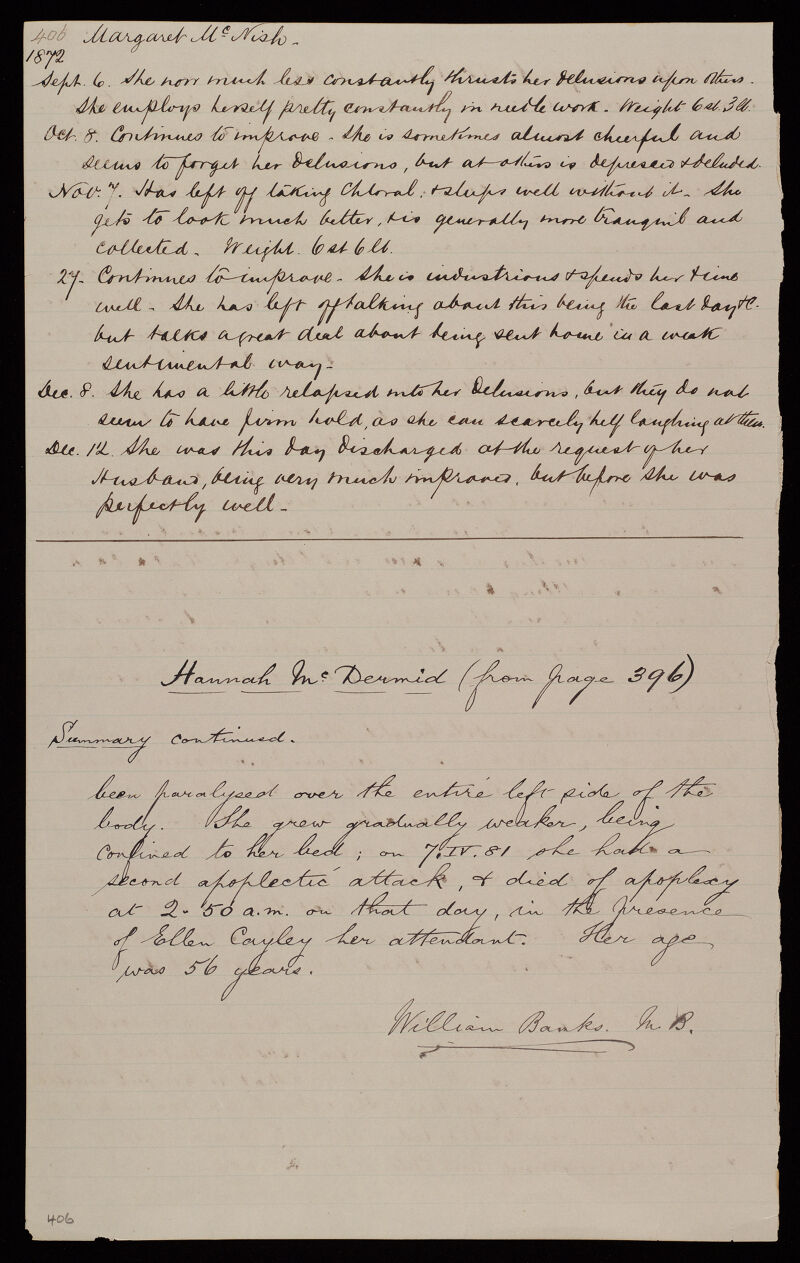 406 Margaret McNish -
1872
Sept. 6. She now much less constantly thrusts her delusions upon others.
She employs herself pretty constantly in needle work. Weight 6 st 3 lb.
Oct. 8. Continues to improve - She is sometimes almost cheerful and
seems to forget her delusions, but at others is depressed & deluded.
Nov. 7. Has left off taking Chloral: & sleeps well without it. She
gets to look much better, & is generally more tranquil and
collected. Weight. 6 st 6 lb.
27. Continues to improve. She is industrious & spends her time
well - She has left off talking about this being the last day &c.
but talks a great deal about being sent home in a weak
sentimental way -
Dec. 8. She has a little relapsed into her delusions, but they do not
seem to have firm hold, as she can scarcely help laughing at them.
Dec. 12. She was this day discharged at the request of her
Husband, being very much improved, but before she was
perfectly well -
Hannah McDermid (from page 396)
Summary continued.
been paralysed over the entire left side of the
body. She grew gradually weaker, being
confined to her bed; on 7.IV.81 she had a
second apoplectic attack, & died of apoplexy
at 2.50 a.m. on that day, in the presence
of Ellen Cayley her attendant. Her age
was 56 years.
William Banks. M.B.
406